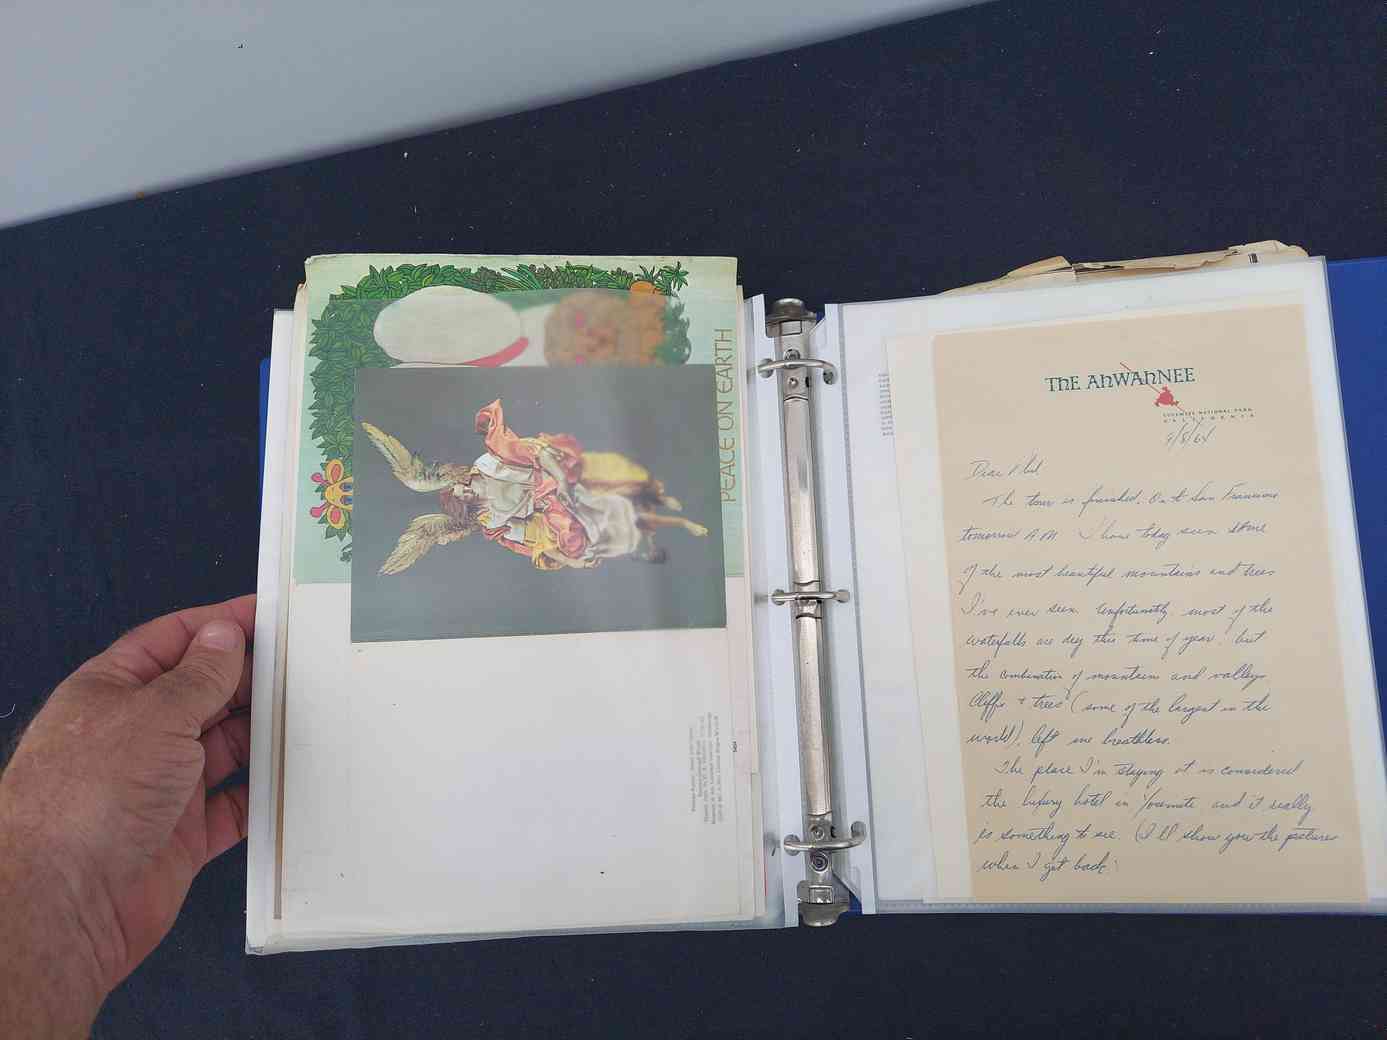 PEACE ON EARTH
THE AHWAHNEE
YOSEMITE NATIONAL PARK
CALIFORNIA
Dear Phil
The tour is finished. On to San Francisco
tomorrow A.M. I have today seen some
of the most beautiful mountains and trees
I've ever seen. Unfortunatly, most of the
waterfalls are dry this time of year, but
the combination of mountains and valleys
Cliffs + trees (some of the largest in the
world), left me breathless.
The place I'm staying at is considered
the luxury hotel in Yosemite and it really
is something to see. (I'll show you the pictures
when I get back.